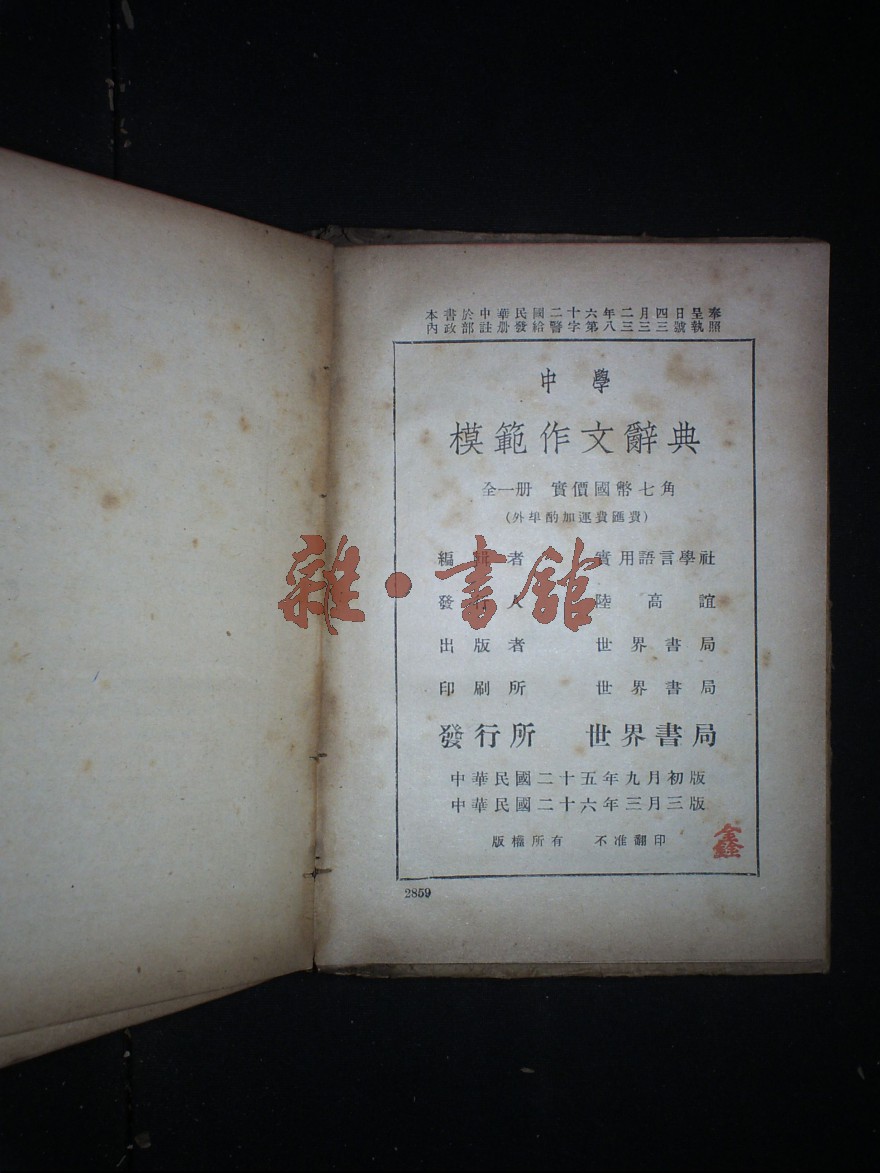 本書於中華民國二十六年二月四日呈奉
內政部註册發給警字第八三三三號執照
中學
模範作文辭典
全一册 實價國幣七角
(外埠酌加運費匯費)
編輯者 實用語言學社
發行人 陸高誼
出版者 世界書局
印刷所 世界書局
發行所 世界書局
中華民國二十五年九月初版
中華民國二十六年三月三版
版權所有 不准翻印
2859
雜·書館